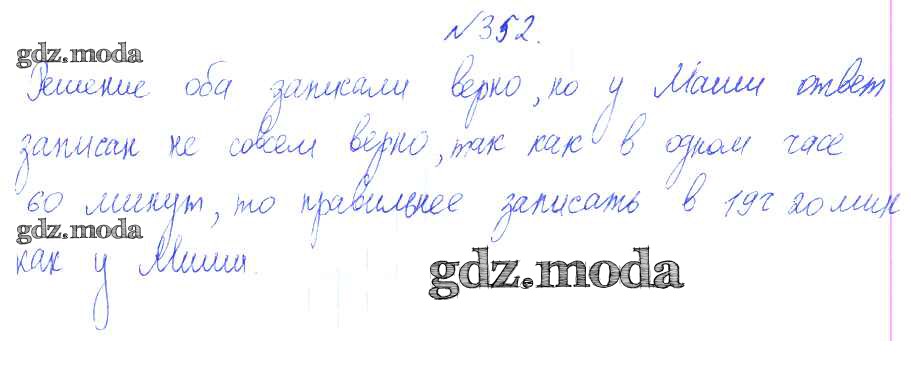 №352.
gdz.moda
Решение оба записали верно, но у Маши ответ
записан не совсем верно, так как в одном часе
60 минут, то правильнее записать в 19ч 20мин
gdz.moda
как у Миши.
gdz.moda